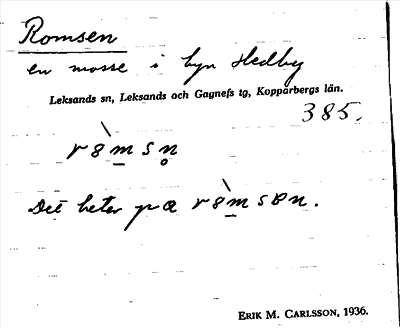 Romsen
en mosse i byn Hedby
Leksands sn, Leksands och Gagnefs tg, Kopparbergs län.
385.
r8̀m̲sn̥
Det heter på r8̀m̲s8n.
ERIK M. CARLSSON, 1936.